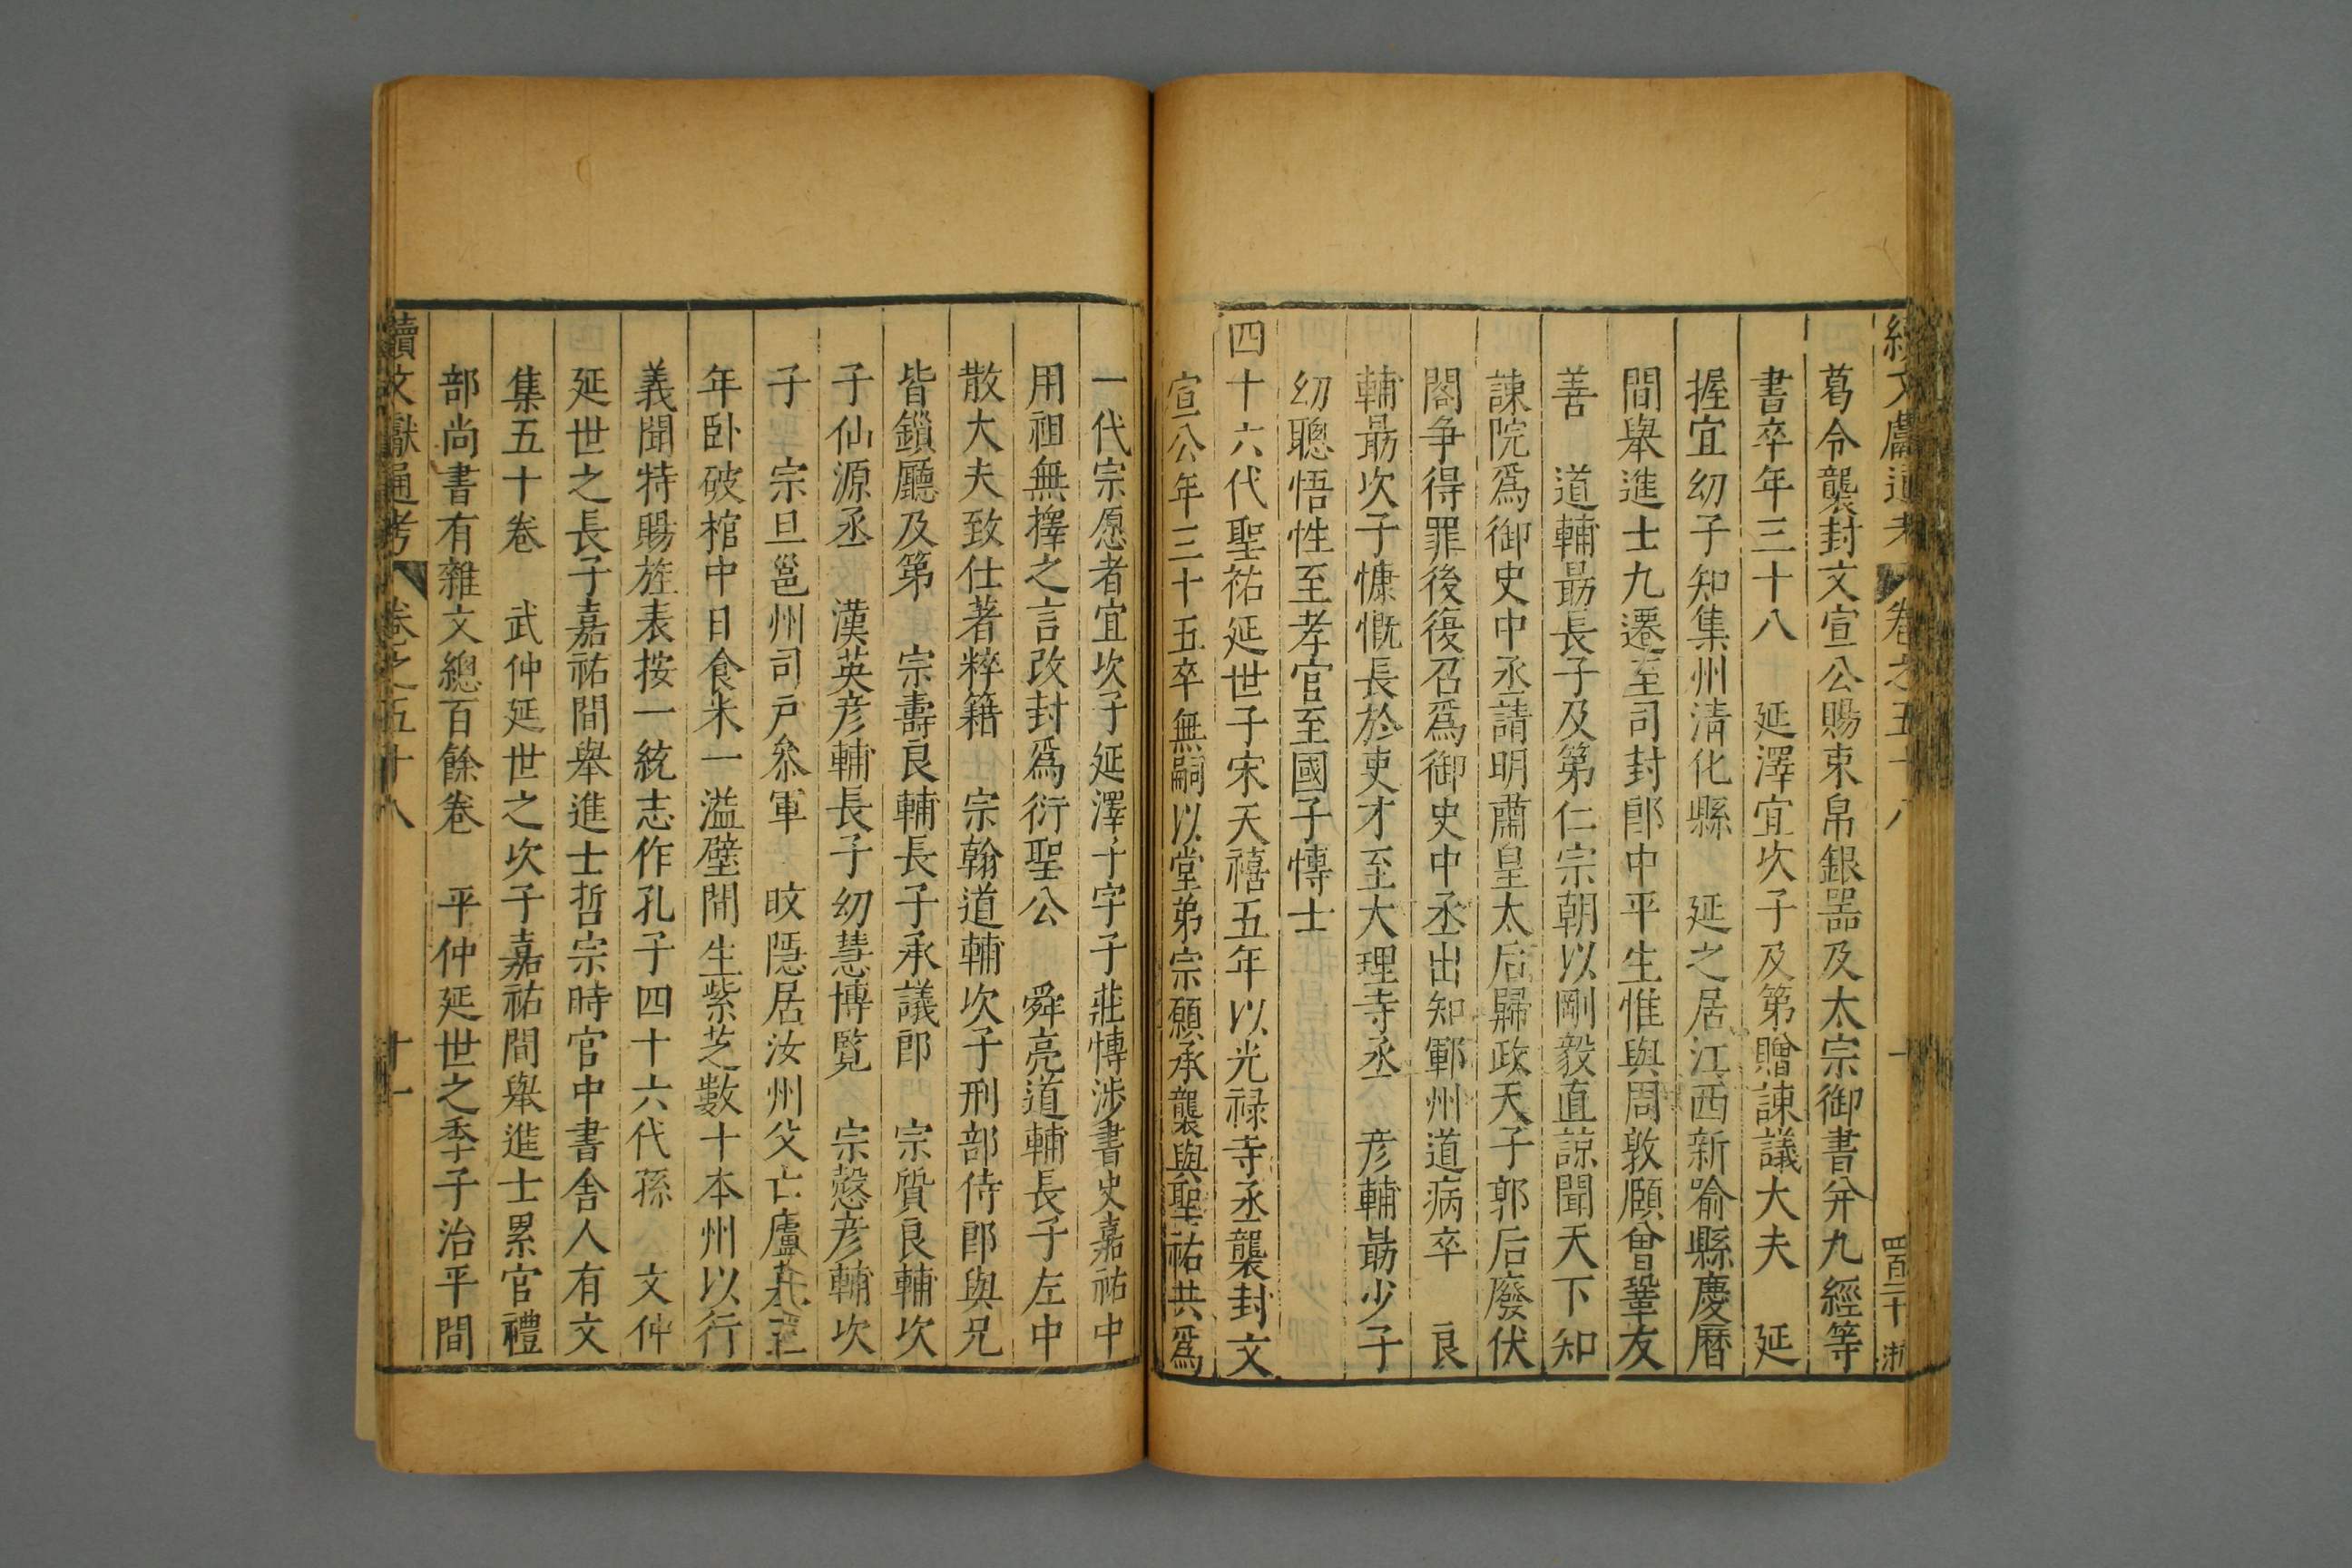 續文獻通考 卷之五十八 十 四百二十 浙
葛令襲封文宣公賜束帛銀器及太宗御書并九經等
書卒年三十八 延澤宜次子及第贈諫議大夫 延
握宜幼子知集州清化縣 延之居江西新喻縣慶曆
間舉進士九遷至司封郎中平生惟與周敦頤曾鞏友
善 道輔最長子及第仁宗朝以剛毅直諒聞天下知
諫院爲御史中丞請明肅皇太后歸政天子郭后廢伏
閣争得罪後復召爲御史中丞出知鄆州道病卒 良
輔最次子慷慨長於吏才至大理寺丞 彦輔最少子
幼聰悟性至孝官至國子博士
四十六代聖祐延世子宋天禧五年以光禄寺丞襲封文
宣公年三十五卒無嗣以堂弟宗願承襲與聖祐共爲
一代宗愿者宜次子延澤子字子莊博涉書史嘉祐中
用祖無擇之言改封爲衍聖公 舜亮道輔長子左中
散大夫致仕著粹籍 宗翰道輔次子刑部侍郎與兄
皆鎖廳及第 宗壽良輔長子承議郎 宗質良輔次
子仙源丞 漢英彦輔長子幼慧博覧 宗愨彦輔次
子 宗旦邕州司戸叅軍 旼隱居汝州父亡廬墓三
年卧破棺中日食米一溢壁間生紫芝數十本州以行
義聞特賜旌表按一統志作孔子四十六代孫 文仲
延世之長子嘉祐間舉進士哲宗時官中書舍人有文
集五十卷 武仲延世之次子嘉祐間舉進士累官禮
部尚書有雜文總百餘卷 平仲延世之季子治平間
續文獻通考 卷之五十八 十一